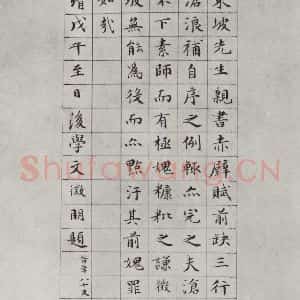 東坡先生親書赤壁賦前缺三行
滄浪補自序之例輒亦完之夫滄
不下素師而有極愧糠粃之謙徵
坡無能為役而亦點汙其前愧罪
如哉
靖戊午至日後學文徵明題
Shufawang.CN